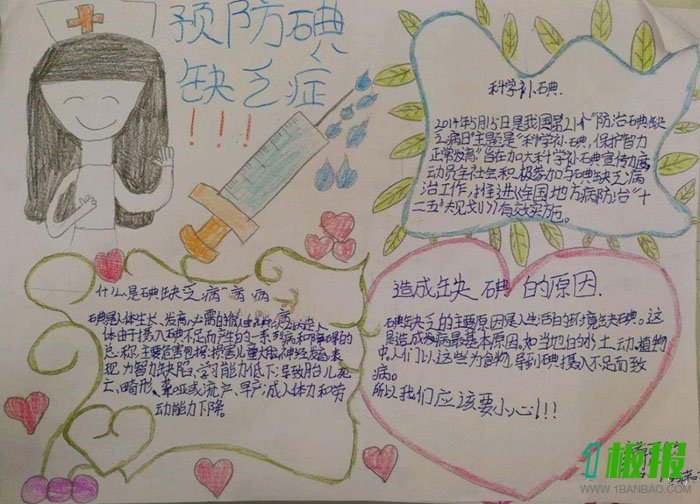 预防碘
缺乏症
!!!
科学补碘.
2014年5月15日是我国第21个"防治碘缺
乏病日"主题是"科学补碘,保护智力
正常发育"旨在加大科学补碘宣传力度,
动员全社会积极参加与碘缺乏病
防治工作,推进全国地方病防治"十
二五"规划有效实施。
什么是碘缺乏病
碘是人体生长、发育必需的微量元素
体由于摄入碘不足而产生的一系列病和障碍的
总称,主要危害包括:损害儿童大脑神经发育,表
现为智力缺陷、学习能力低下;导致胎儿死
亡、畸形、聋哑或流产、早产;成人体力和劳
动能力下降。
造成缺碘的原因.
碘缺乏的主要原因是人生活的环境缺碘。这
是造成病最基本原因。如当地的水土、动、植物
中,人们以这些为食物,导到碘摄入不足而致
病。
所以我们应该要小心!!!
1板报
WWW.1BANBAO.COM